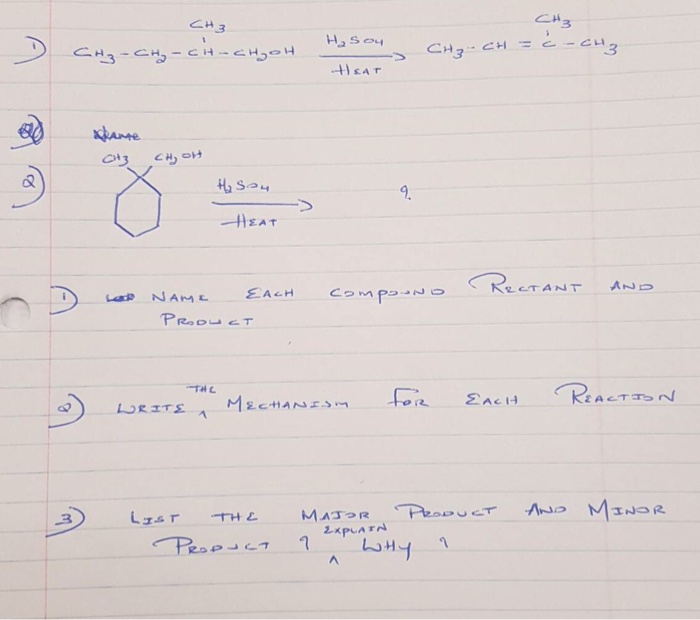 CH3 CH3
1) CH3-CH2-CH-CH2OH H2SO4 HEAT CH3-CH=C-CH3
Name
CH3 CH2OH
2) H2SO4 HEAT ?
1) NAME EACH COMPOUND RECTANT AND
PRODUCT
2) WRITE THE MECHANISM FOR EACH REACTION
3) LIST THE MAJOR PRODUCT AND MINOR
PRODUCT ? EXPLAIN WHY ?